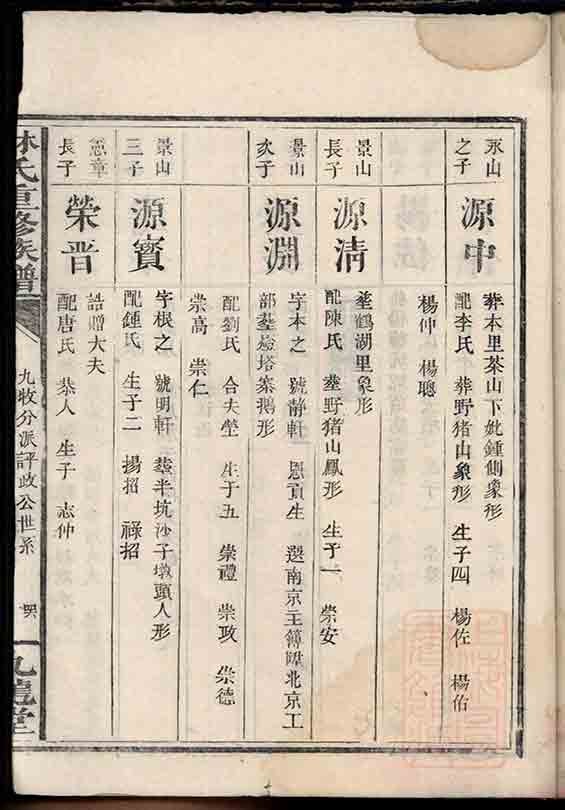 永山
之子
源中
葬本里茶山下妣鍾側象形
配李氏 葬野猪山象形 生子四 楊佐 楊佑
楊仲 楊聰
景山
長子
源清
塟鶴湖里象形
配陳氏 塟野猪山鳳形 生子一 崇安
景山
次子
源淵
字本之 號靜軒 恩貢生 選南京主簿陞北京工
部 塔寨鵝形
配劉氏 合夫塋 生子五 崇禮 崇政 崇德
崇高 崇仁
景山
三子
源賓
字根之 號明軒 塟半坑沙子墩頭人形
配鍾氏 生子二 揚招 祿招
憲章
長子
榮晋
誥贈大夫
配唐氏 恭人 生子 志仲
林氏重修族譜
九牧分派評政公世系
九龍堂